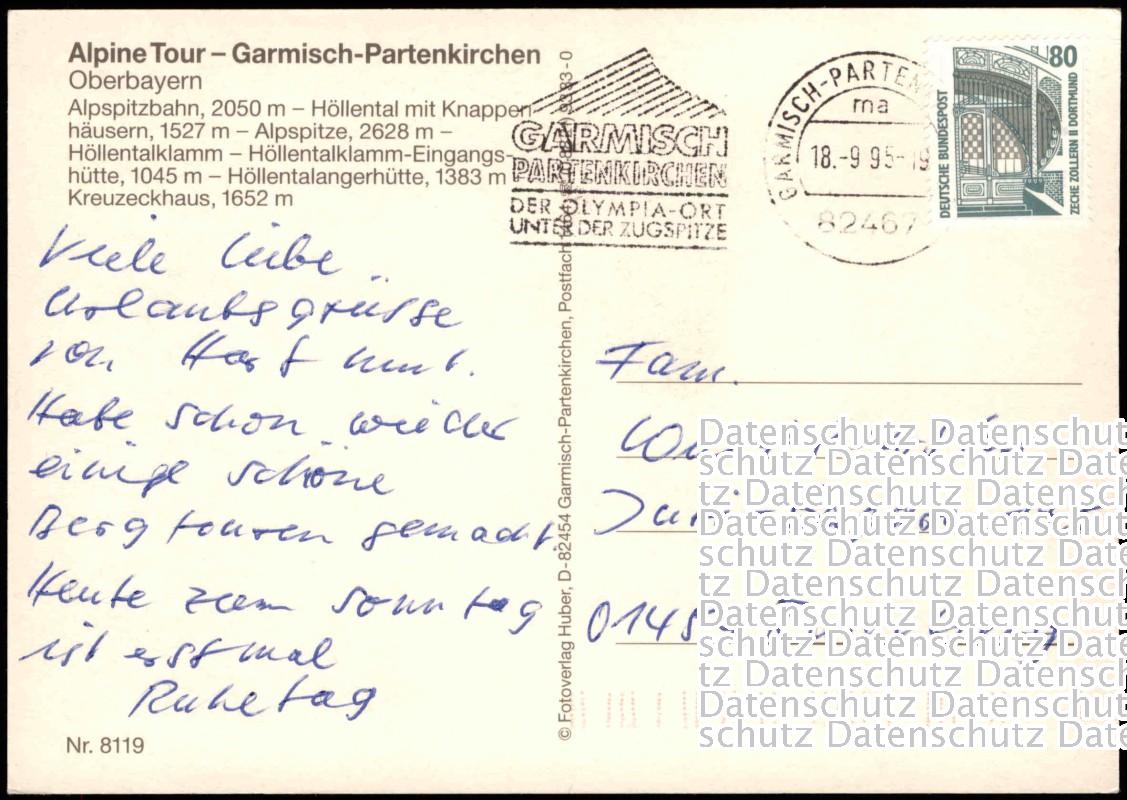 Alpine Tour – Garmisch-Partenkirchen
Oberbayern
Alpspitzbahn, 2050 m – Höllental mit Knappen-
häusern, 1527 m – Alpspitze, 2628 m –
Höllentalklamm – Höllentalklamm-Eingangs-
hütte, 1045 m – Höllentalangerhütte, 1383 m
Kreuzeckhaus, 1652 m
Viele liebe
Urlaubsgrüsse
von Hartmut.
Habe schon wieder
einige schöne
Bergtouren gemacht.
Heute zum Sonntag
ist erstmal
Ruhetag
Nr. 8119
© Fotoverlag Huber, D-82454 Garmisch-Partenkirchen, Postfach
GARMISCH
PARTENKIRCHEN
DER OLYMPIA-ORT
UNTER DER ZUGSPITZE
GARMISCH-PARTEN
ma
18.-9 95-19
82467
80
DEUTSCHE BUNDESPOST
ZECHE ZOLLERN II DORTMUND
Fam.
Datenschutz Datenschut
schutz Datenschutz Date
tz Datenschutz Datensch
Datenschutz Datenschut
schutz Datenschutz Date
tz Datenschutz Datensch
Datenschutz Datenschut
schutz Datenschutz Date
tz Datenschutz Datensch
Datenschutz Datenschut
schutz Datenschutz Date